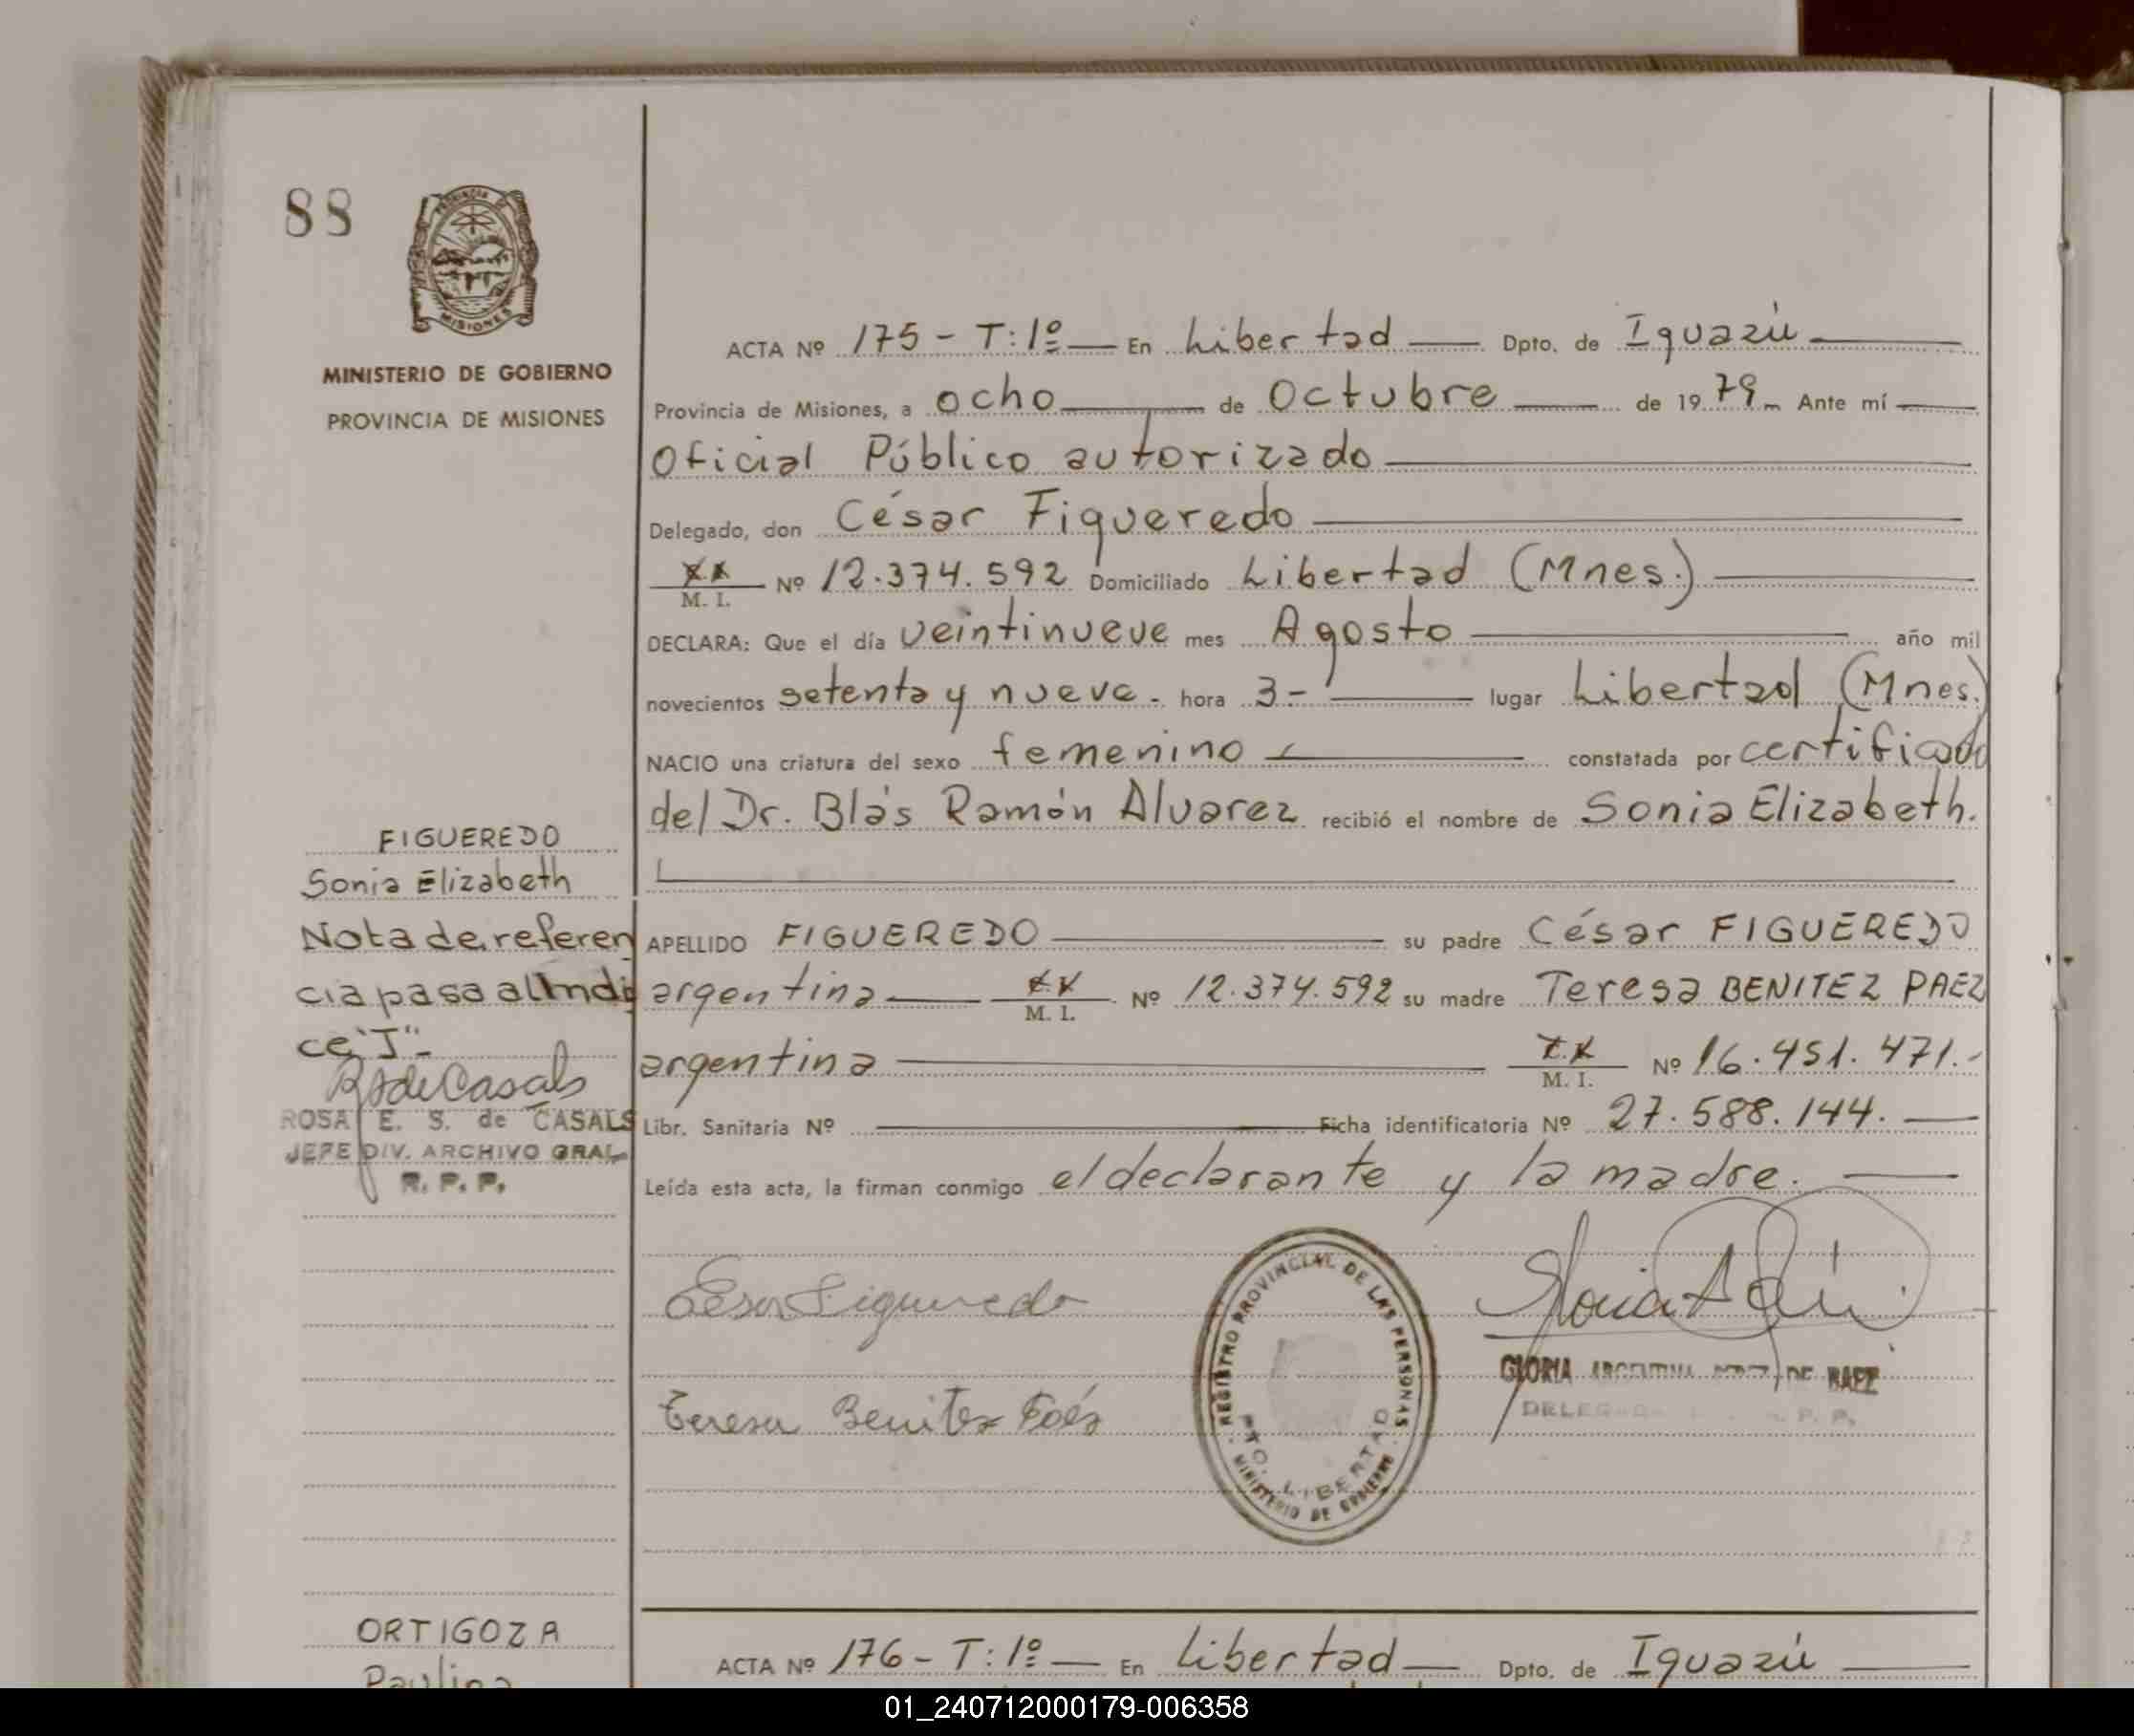 88
PROVINCIA DE
MISIONES
MINISTERIO DE GOBIERNO
PROVINCIA DE MISIONES
ACTA Nº 175 - T: 1º — En Libertad — Dpto. de Iguazú
Provincia de Misiones, a ocho — de Octubre — de 19 79 — Ante mí —
Oficial Público autorizado
Delegado, don César Figueredo
M. I. Nº 12.374.592 Domiciliado Libertad (Mnes.)
DECLARA: Que el día veintinueve mes Agosto — año mil
novecientos setenta y nueve - hora 3 - — lugar Libertad (Mnes.)
NACIO una criatura del sexo femenino — constatada por certificado
del Dr. Blás Ramón Alvarez recibió el nombre de Sonia Elizabeth.
FIGUEREDO
Sonia Elizabeth
Nota de referen
cia pasa al Indi
ce "J" -
RSdeCasals
ROSA E. S. de CASALS
JEFE DIV. ARCHIVO GRAL.
R. P. P.
APELLIDO FIGUEREDO — su padre César FIGUEREDO
argentina — M. I. Nº 12.374.592 su madre Teresa BENITEZ PAEZ
argentina — M. I. Nº 16.451.471.-
Libr. Sanitaria Nº — Ficha identificatoria Nº 27.588.144. —
Leída esta acta, la firman conmigo el declarante y la madre. —
César Figueredo
Teresa Benitez Paéz
REGISTRO PROVINCIAL DE LAS PERSONAS
PTO. LIBERTAD
MINISTERIO DE GOBIERNO
GLORIA ARGENTINA DE
ORTIGOZA
Paulina
ACTA Nº 176 - T: 1º — En Libertad — Dpto. de Iguazú —
01_240712000179-006358